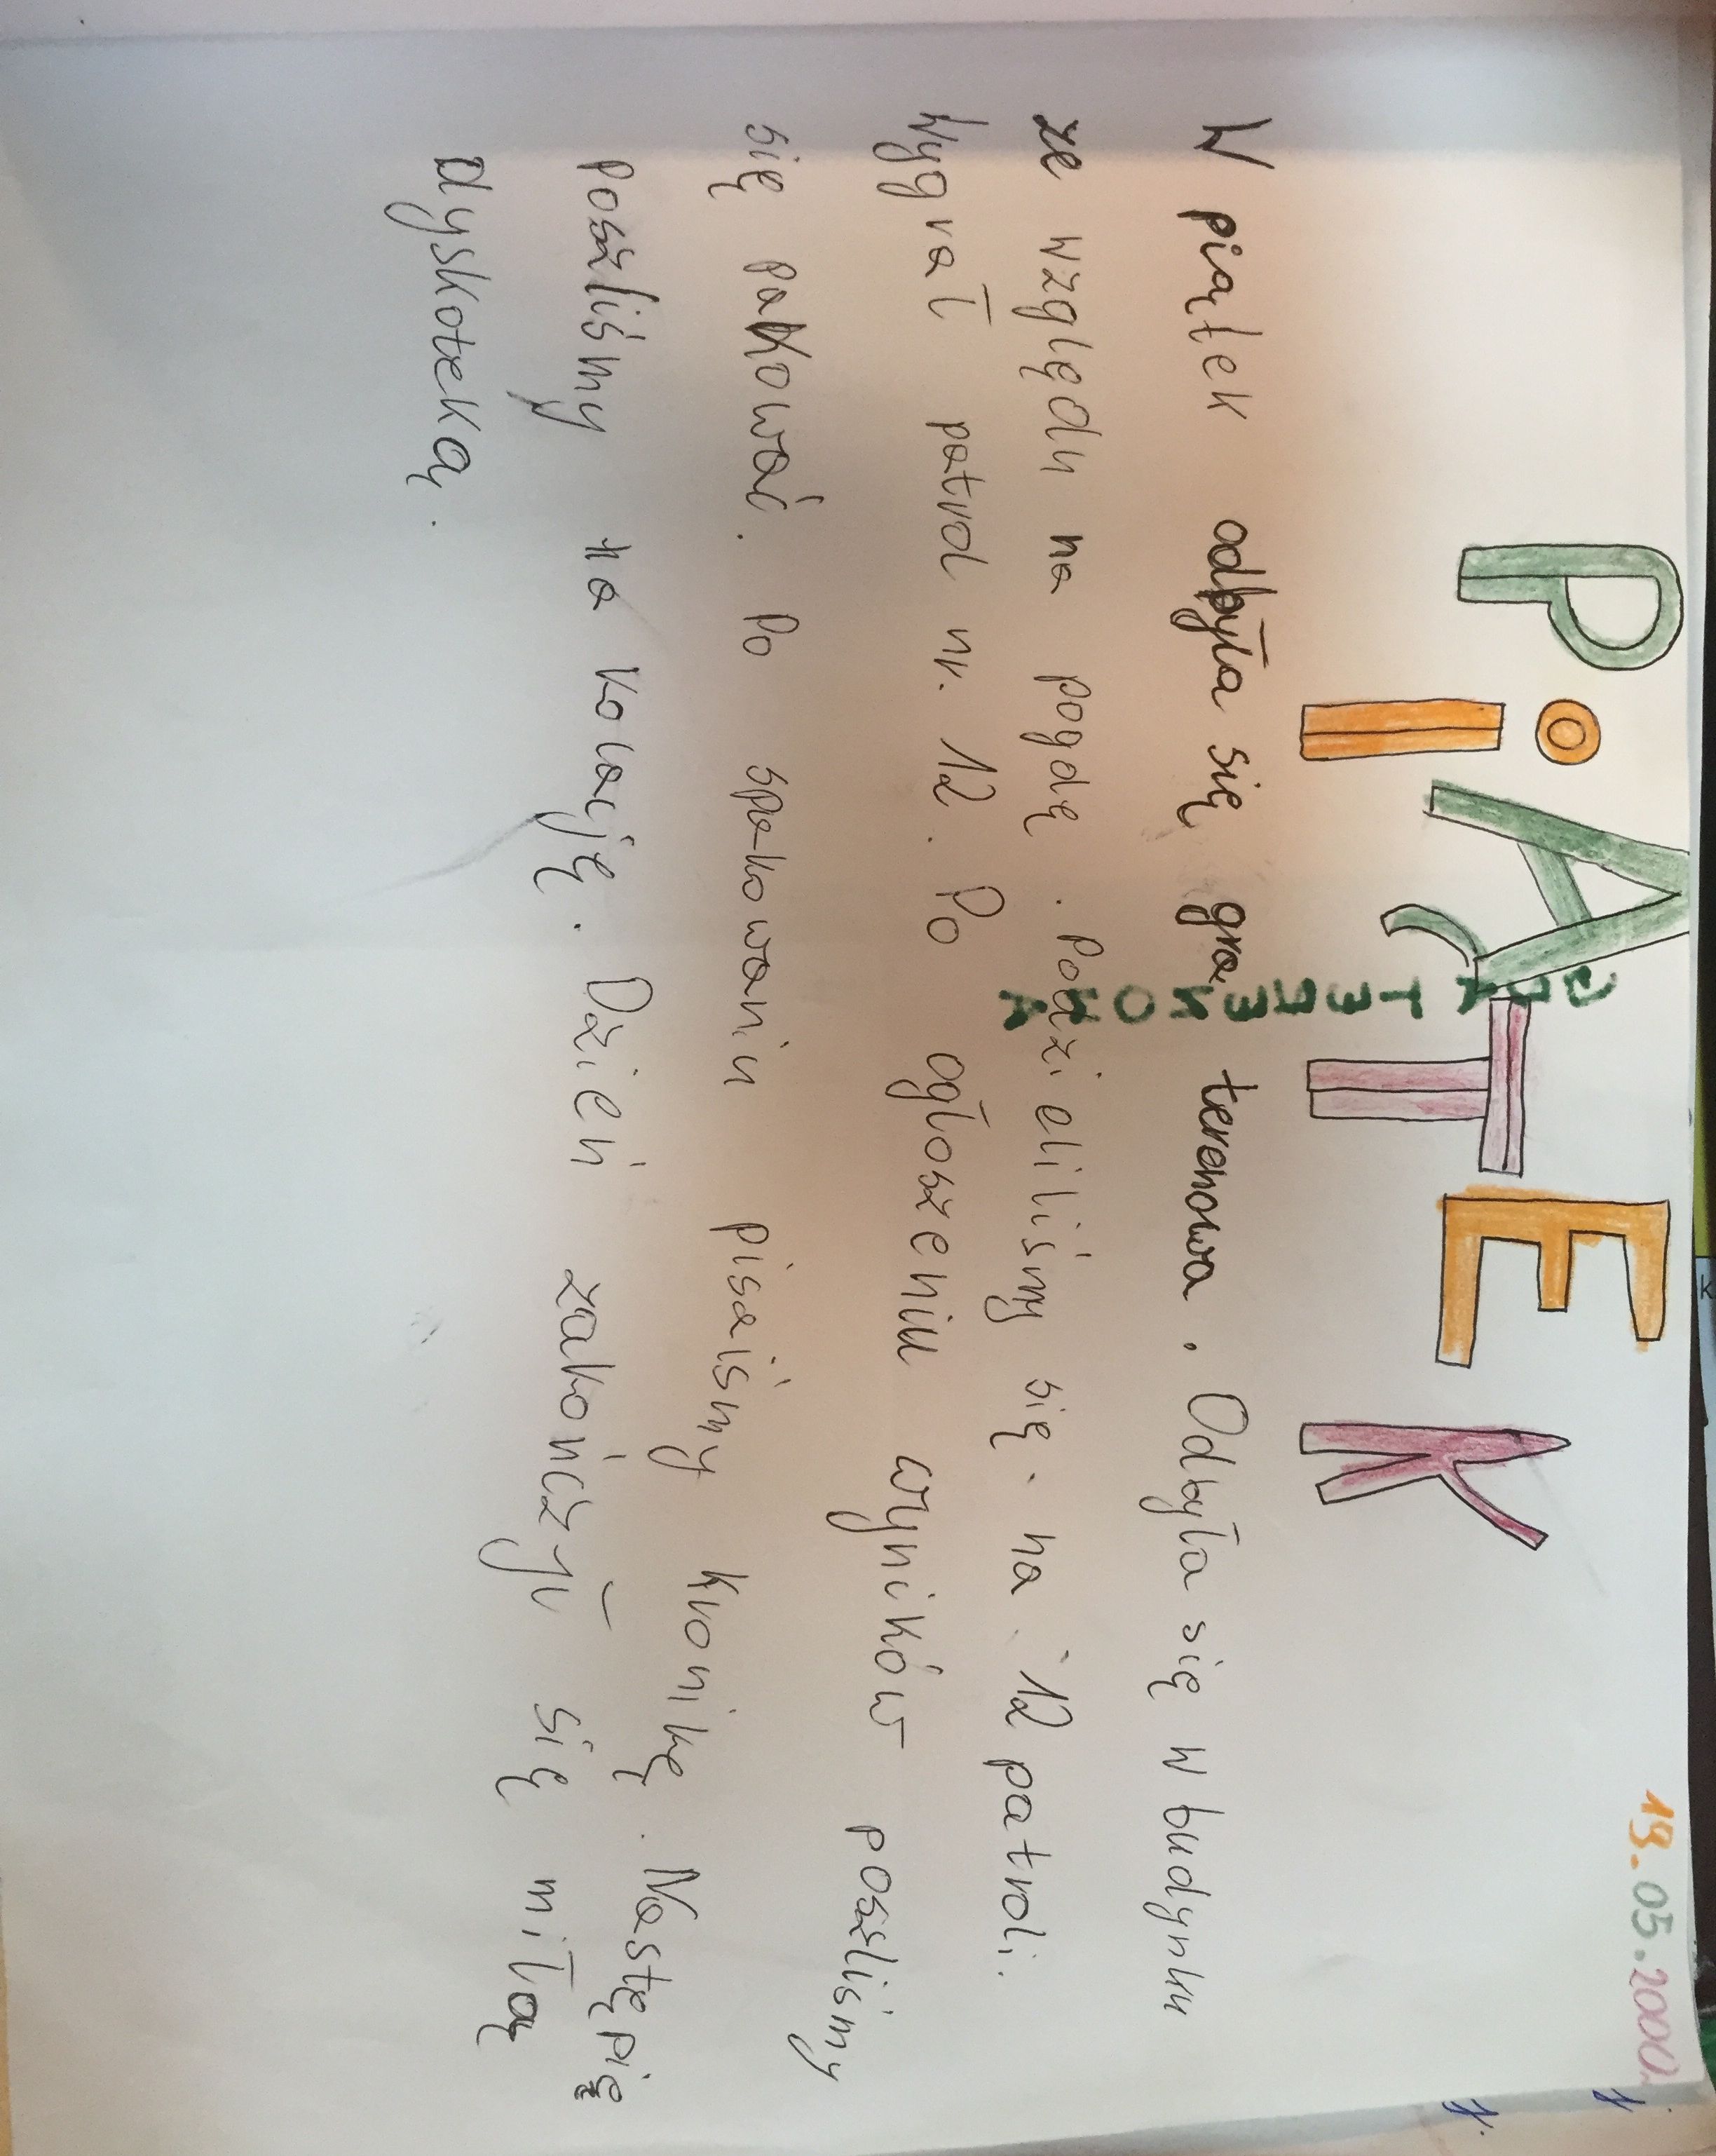 19.05.200
PiĄTEK
W piątek odbyła się gra terenowa. Odbyła się w budynku
ze względu na pogdę. Podzieliliśmy się na 12 patroli.
Wygrał patrol nr. 12. Po ogłoszeniu wyników poszliśmy
się pakować. Po spakowaniu pisaiśmy kronikę. Następię
poszliśmy na kolację. Dzień zakończył się miłą
dyskoteką.